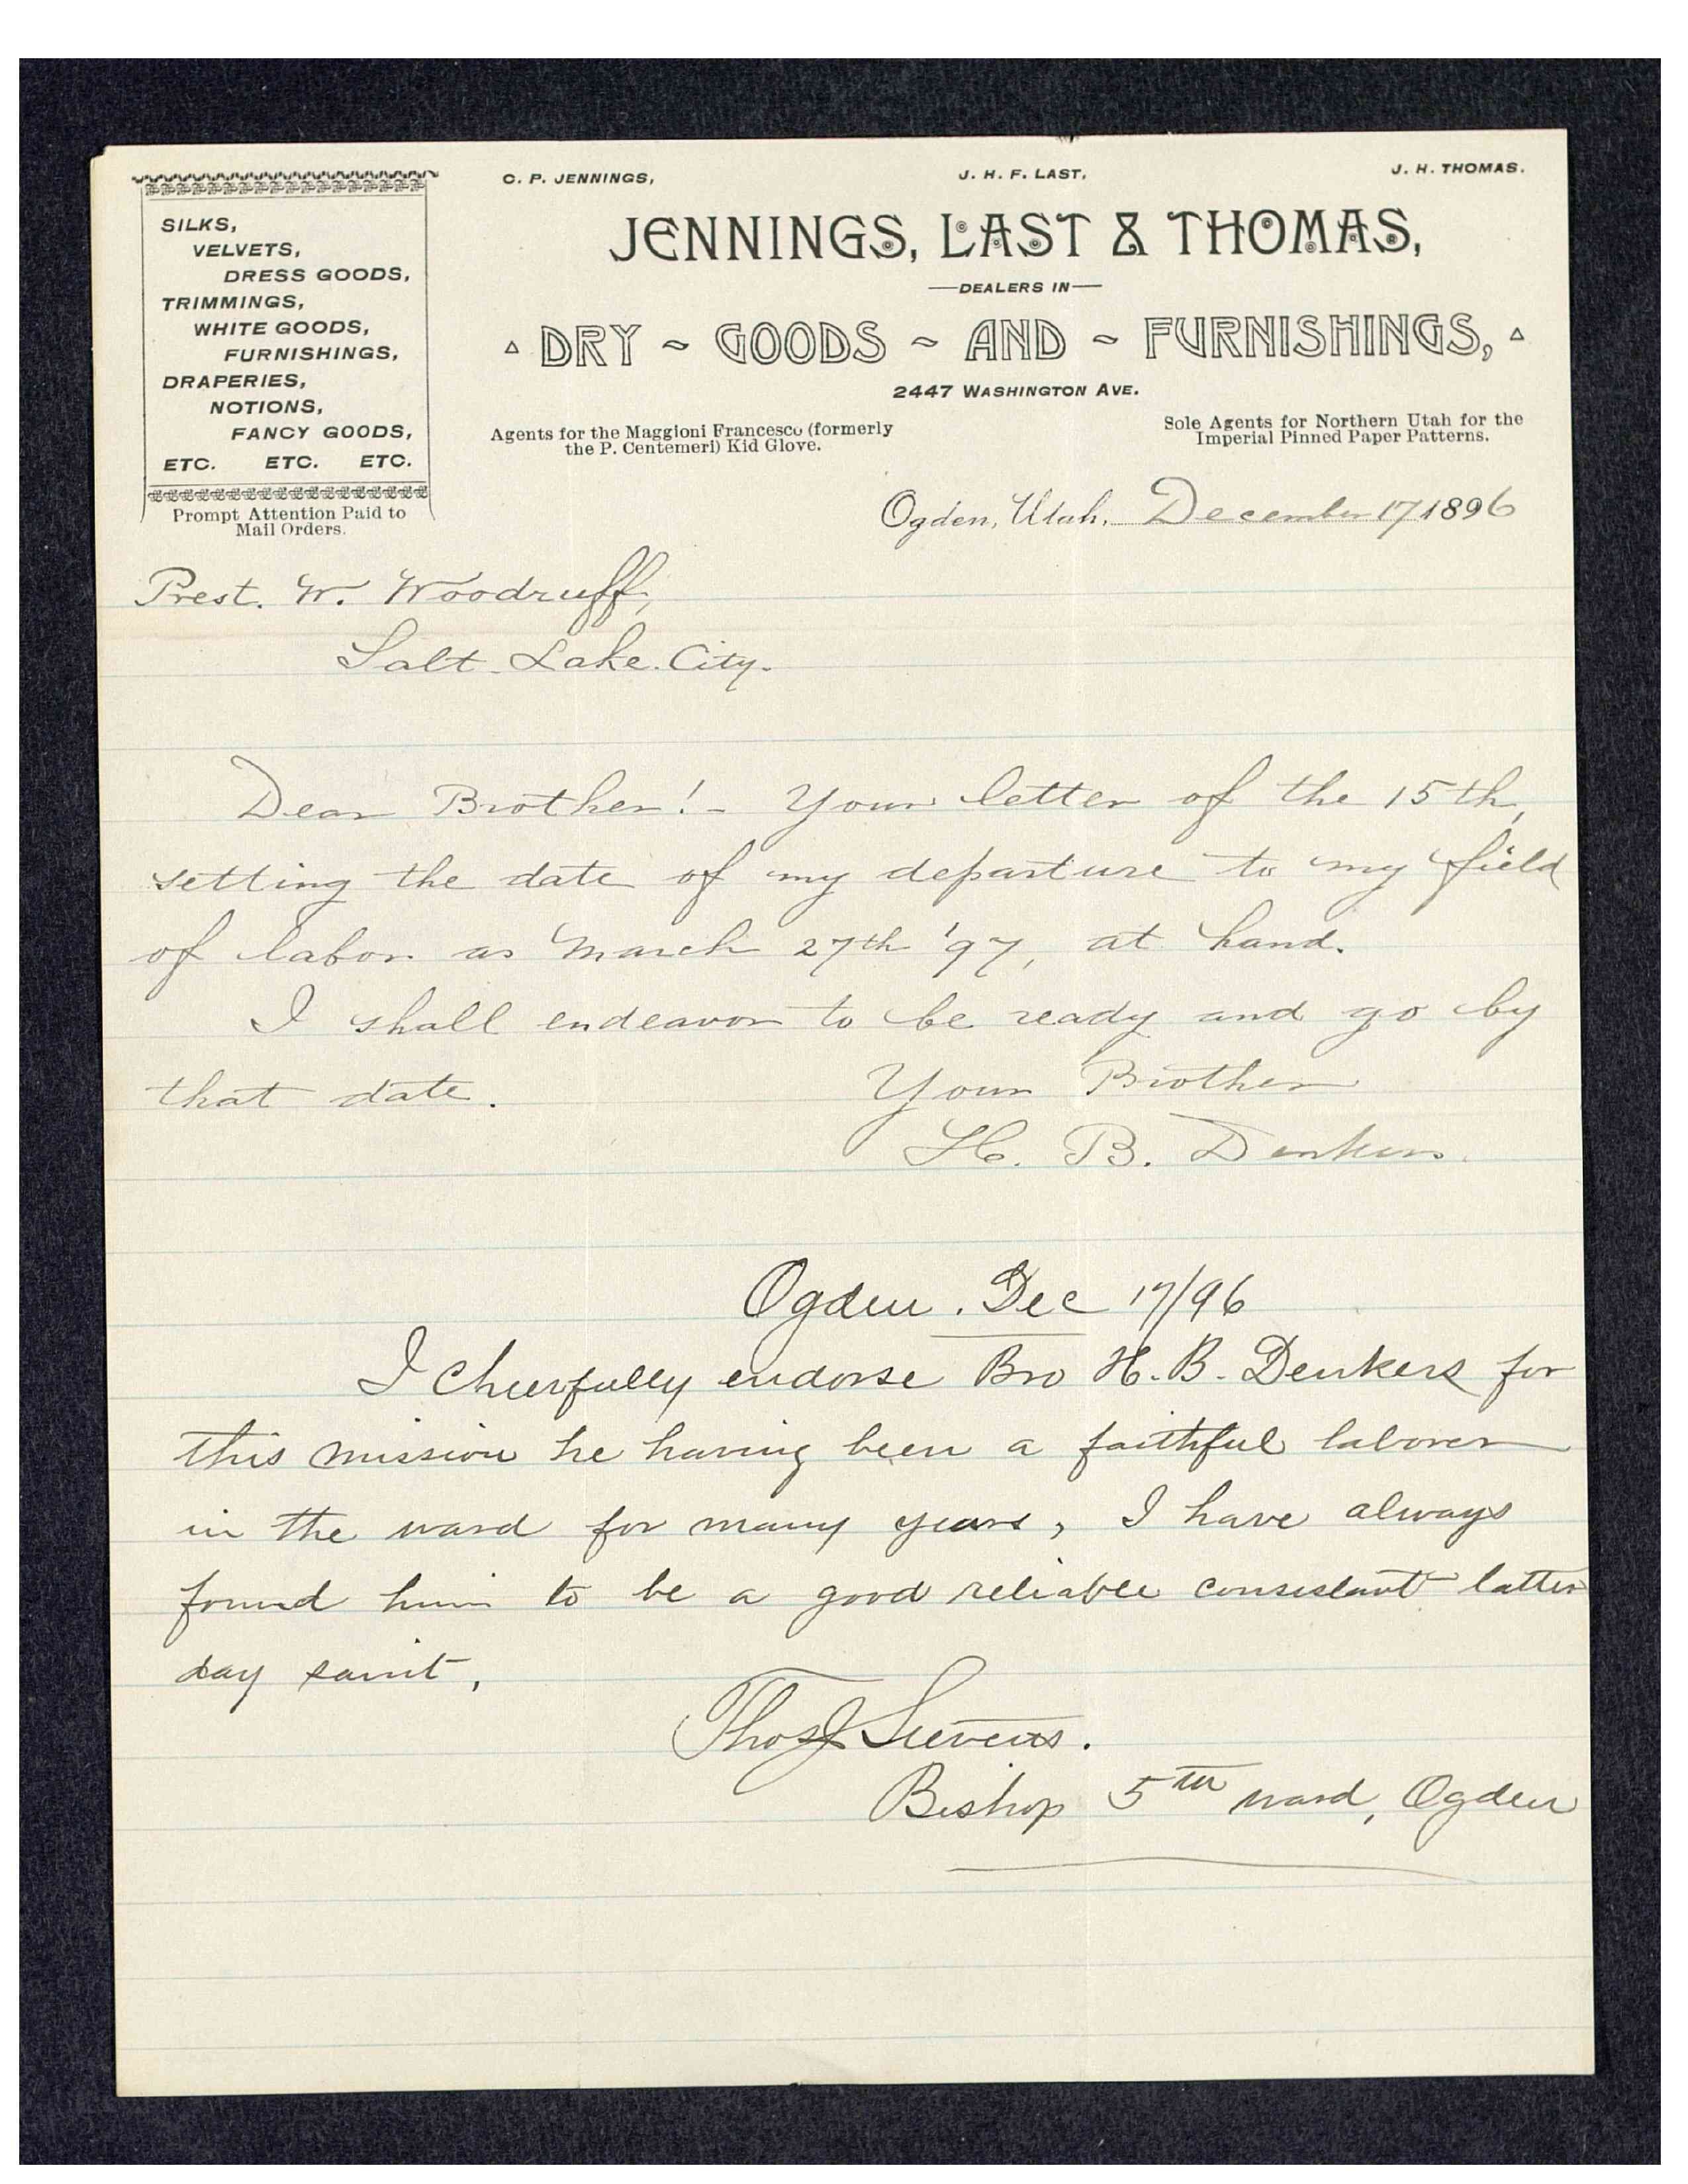 C. P. JENNINGS, J. H. F. LAST, J. H. THOMAS.
JENNINGS, LAST & THOMAS,
—DEALERS IN—
DRY ~ GOODS ~ AND ~ FURNISHINGS,
2447 WASHINGTON AVE.
Agents for the Maggioni Francesco (formerly
the P. Centemeri) Kid Glove.
Sole Agents for Northern Utah for the
Imperial Pinned Paper Patterns.
SILKS,
VELVETS,
DRESS GOODS,
TRIMMINGS,
WHITE GOODS,
FURNISHINGS,
DRAPERIES,
NOTIONS,
FANCY GOODS,
ETC. ETC. ETC.
Prompt Attention Paid to
Mail Orders.
Ogden, Utah, December 17 1896
Prest. W. Woodruff,
Salt Lake City.
Dear Brother! – Your letter of the 15th,
setting the date of my departure to my field
of labor as March 27th '97, at hand.
I shall endeavor to be ready and go by
that date. Your Brother
H. B. Denkers.
Ogden. Dec 17/96
I cheerfully endorse Bro H. B. Denkers for
this mission he having been a faithful laborer
in the ward for many years, I have always
found him to be a good reliable consistant latter
day saint,
Thos J Stevens.
Bishop 5th ward, Ogden